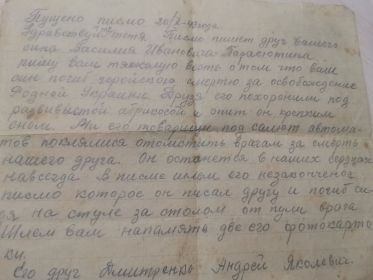 Пущено писмо 20/X-43 года
Здравствуй тетя Писмо пишет друг вашего
сина Василия Ивановича Тарасютина
пишу вам тяжолую весть о том что вам
син погиб геройскою смертю за освобождение
Родной Украини Друзя его похоронили под
развивистой абрикосой и опит он крепким
сном. Ми его товарищи под салют автома-
тов поклялися отомстить врагам за смерть
нашего друга. Он останется в наших сердцах
навсегда. В писме шлем его незаконченое
писмо которое он писал другу и погиб си-
дя на стуле за столом от пули врага
Шлем вам напамять две его фотокарто
ки.
Его друг Дмитренко Андрей Яколевич.